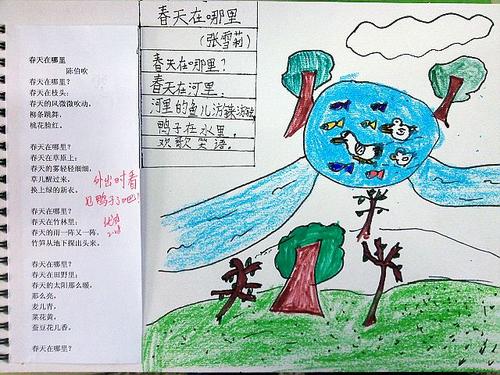 春天在哪里
陈伯吹
春天在哪里？
春天在枝头：
春天的风微微吹动，
柳条跳舞，
桃花脸红。
春天在哪里？
春天在草原上：
春天的雾轻轻细细，
草儿醒过来，
换上绿的新衣。
春天在哪里？
春天在竹林里：
春天的雨一阵又一阵，
竹笋从地下探出头来。
春天在哪里？
春天在田野里：
春天的太阳那么暖，
那么亮，
麦儿青，
菜花黄，
蚕豆花儿香。
春天在哪里？
外出时看
见鸭子了吧！
春天在哪里
（张雪莉）
春天在哪里？
春天在河里．
河里的鱼儿游来游去，
鸭子在水里，
欢歌笑语．